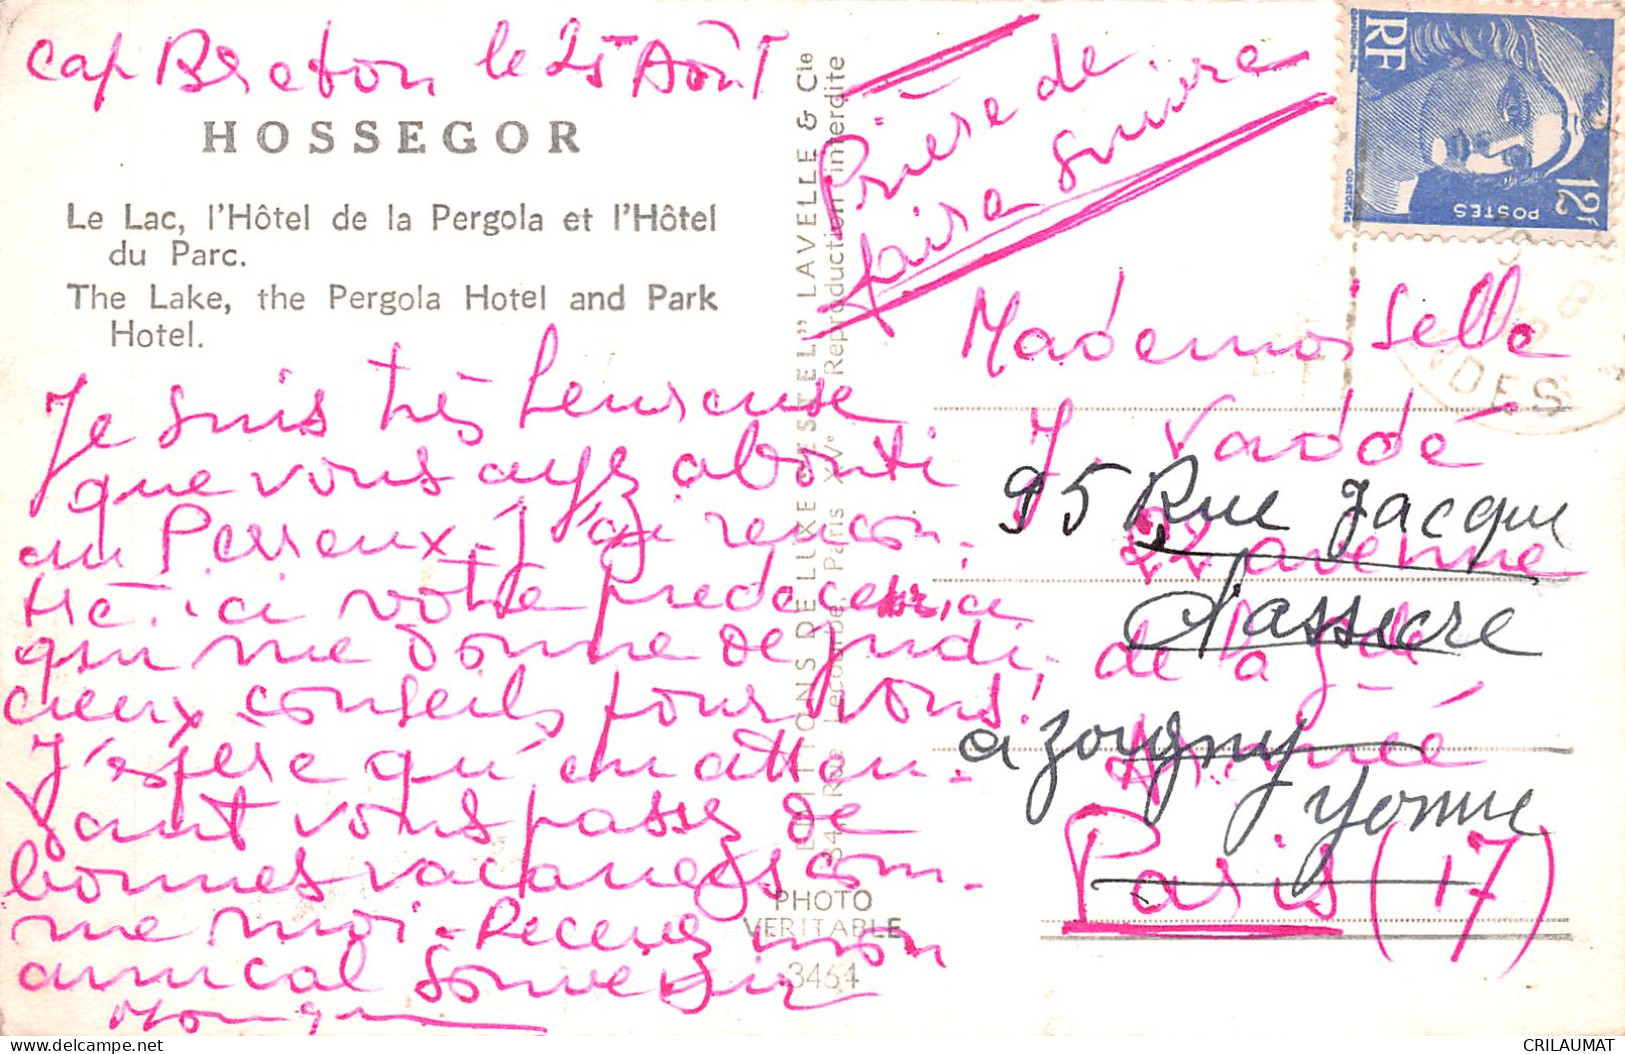 Cap Breton le 25 Août
HOSSEGOR
Le Lac, l'Hôtel de la Pergola et l'Hôtel
du Parc.
The Lake, the Pergola Hotel and Park
Hotel.
Je suis très heureuse
que vous ayez abouti
au Perreux. J'ai rencon-
tré ici votre predecessrice
qui me donne de judi-
cieux conseils pour vous!
J'espère qu'en atten-
dant vous passez de
bonnes vacances com-
me moi. Recevez mon
amical souvenir
EDITIONS DE LUXE "ESTEL" LAVELLE & Cie
34, Rue Lecourbe, Paris XVe Reproduction interdite
PHOTO
VERITABLE
3464
Prière de
faire suivre
RF
POSTES
12F
NDES
Mademoiselle
J. Vaddé
22 avenue
de la Gde
Armée
Paris (17)
95 Rue Jacque
d'assecre
a Joigny
Yonne
CRILAUMAT